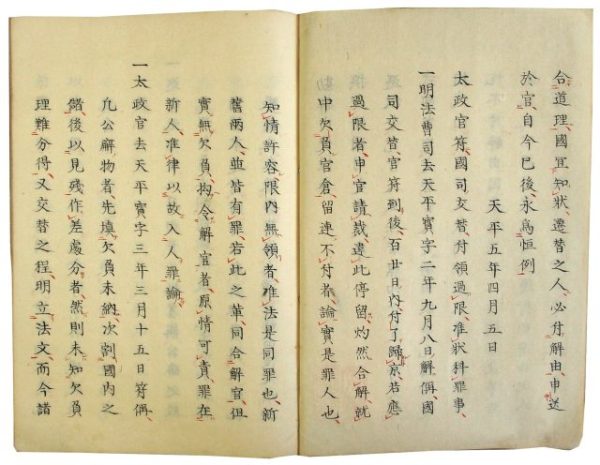 合道理國冝知狀遷替之人必付解由申送
於官自今已後永為恒例
天平五年四月五日
太政官符國司交替付領過限准狀科罪事
一明法曹司去天平寳字二年九月八日解偁國
司交替官符到後百廿日内付了歸京若應
過限者申官請裁違此停留灼然合解就
中欠負官倉留連不付者論實是罪人也
知情許容限内無領者准法是同罪也新
舊兩人並皆有罪若此之輩同合解官但
實無欠負拘令解官者原情可責罪在
新人准律以故入人罪論
一太政官去天平寳字三年三月十五日符偁
凡公廨物者先填欠負未納次割國内之
儲後以見殘作差處分者然則未知欠負
理難分得又交替之程明立法文而今諸